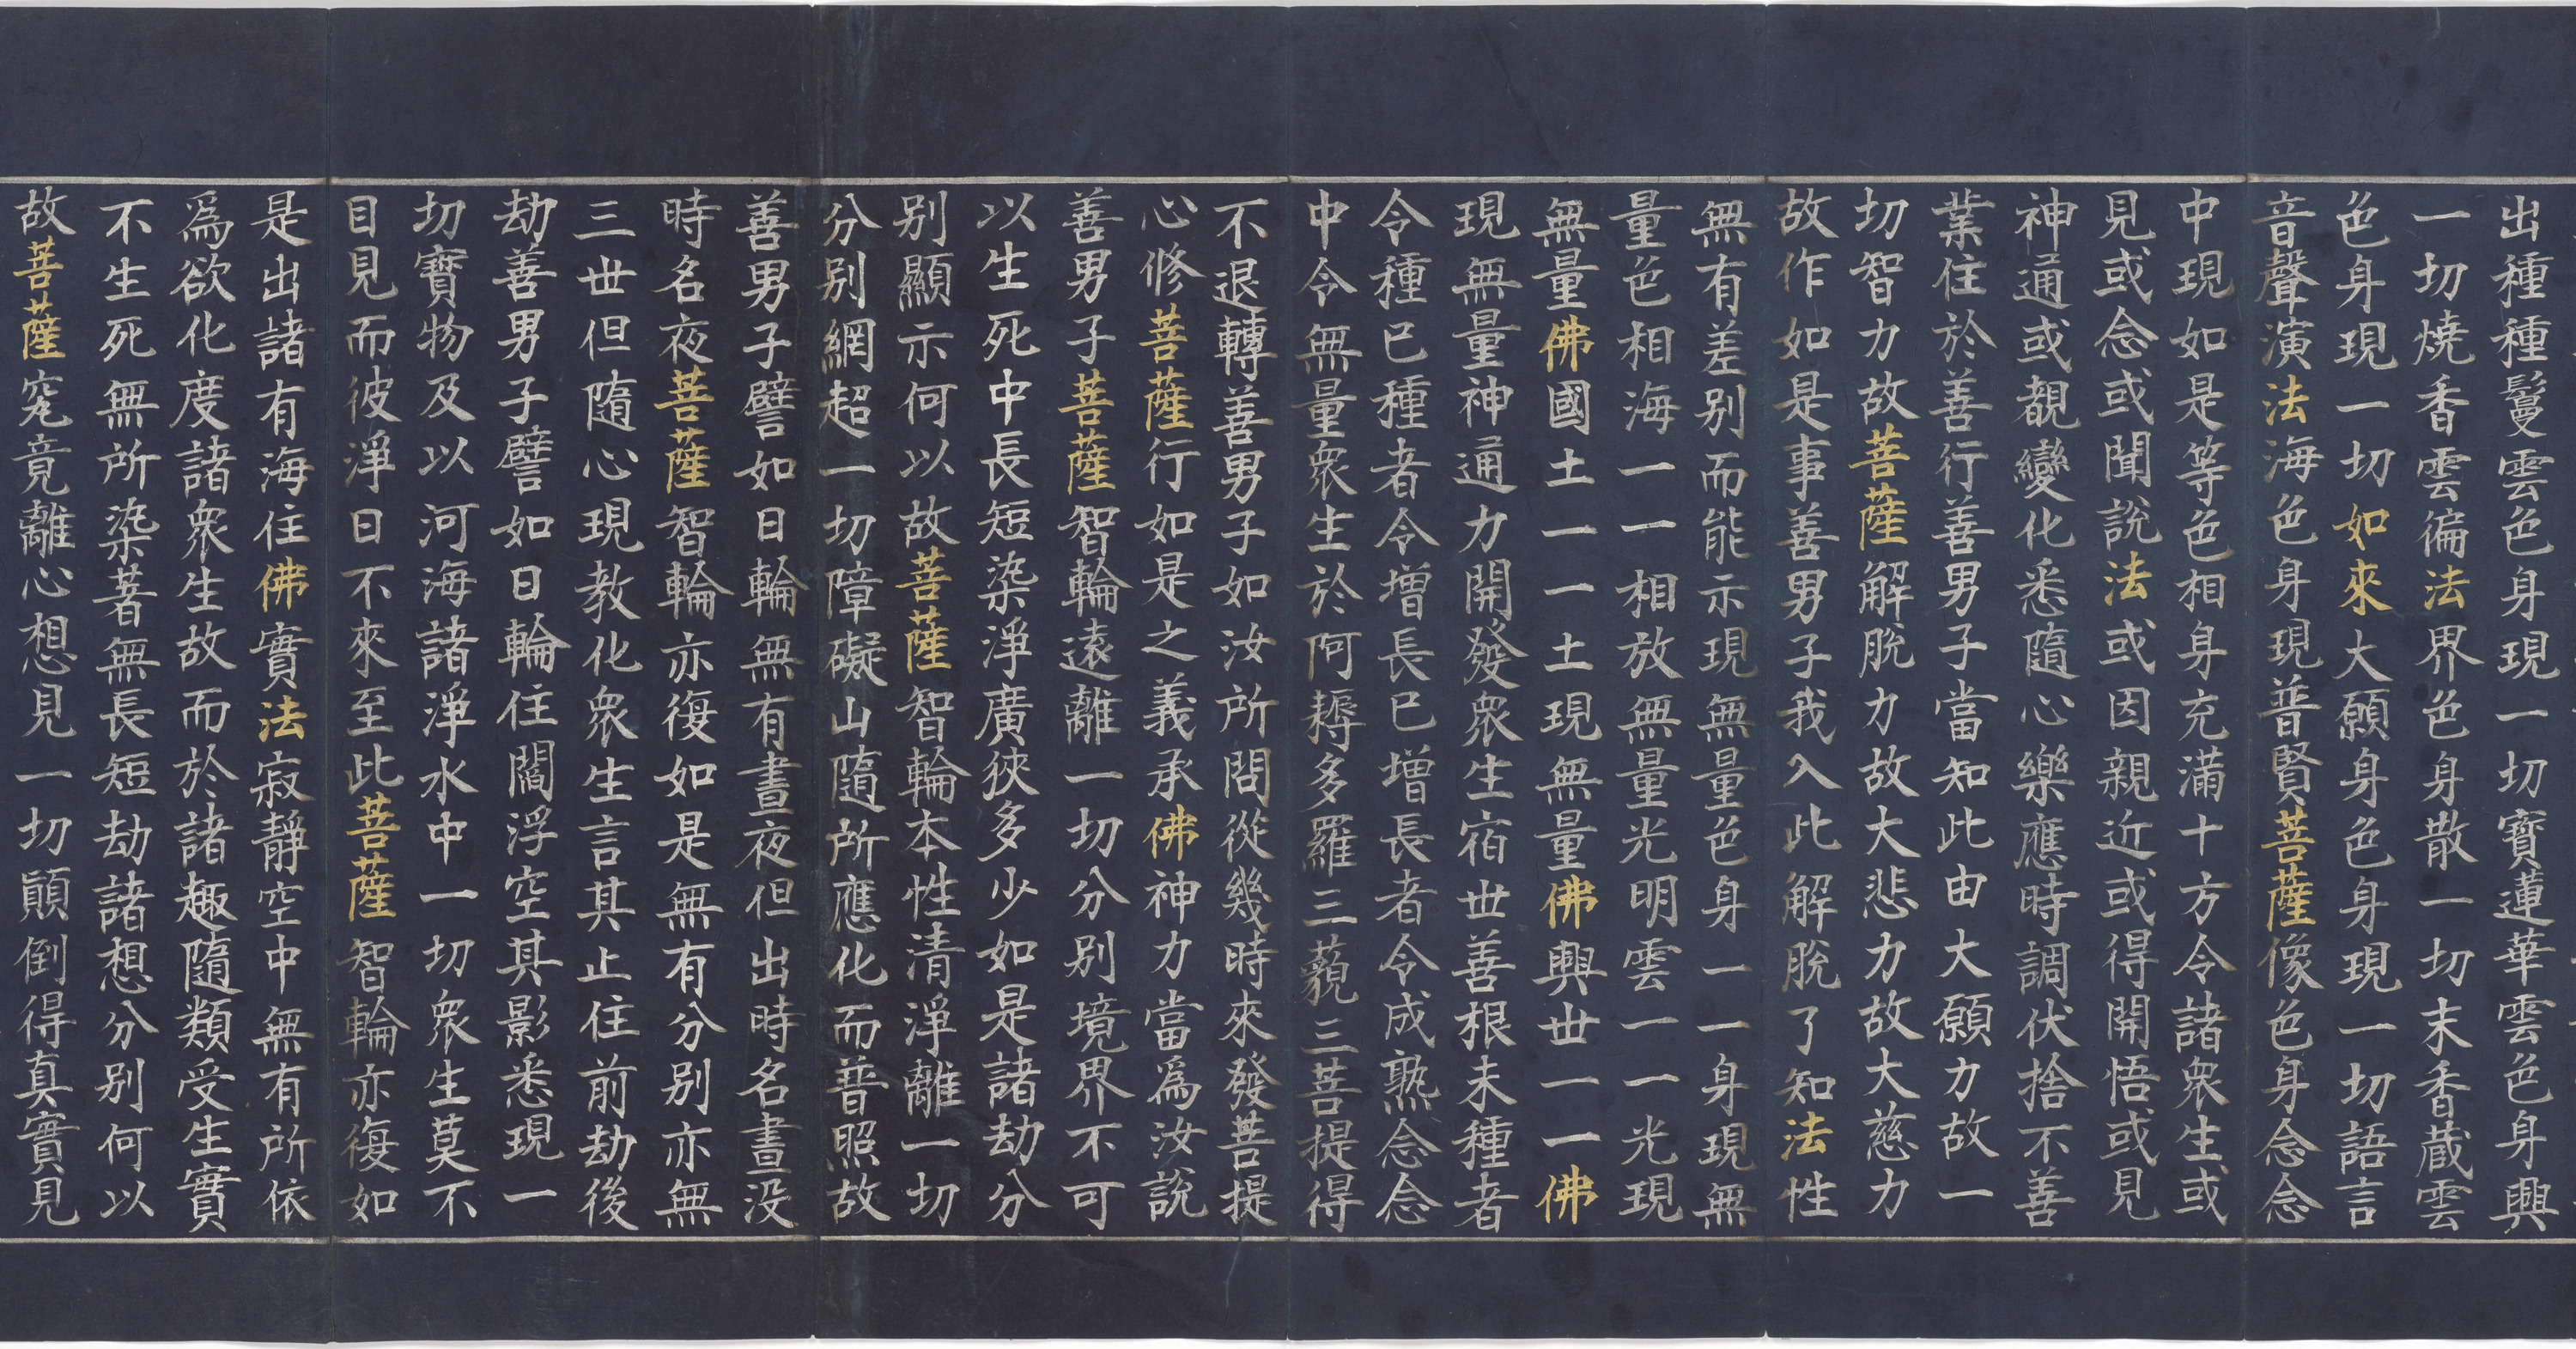 出種種鬘雲色身現一切寶蓮華雲色身興
一切燒香雲徧法界色身散一切末香藏雲
色身現一切如來大願身色身現一切語言
音聲演法海色身現普賢菩薩像色身念念
中現如是等色相身充滿十方令諸衆生或
見或念或聞說法或因親近或得開悟或見
神通或覩變化悉隨心樂應時調伏捨不善
業住於善行善男子當知此由大願力故一
切智力故菩薩解脫力故大悲力故大慈力
故作如是事善男子我入此解脫了知法性
無有差别而能示現無量色身一一身現無
量色相海一一相放無量光明雲一一光現
無量佛國土一一土現無量佛興世一一佛
現無量神通力開發衆生宿世善根未種者
令種已種者令增長已增長者令成熟念念
中令無量衆生於阿耨多羅三藐三菩提得
不退轉善男子如汝所問從幾時來發菩提
心修菩薩行如是之義承佛神力當爲汝說
善男子菩薩智輪遠離一切分别境界不可
以生死中長短染淨廣狹多少如是諸劫分
别顯示何以故菩薩智輪本性清淨離一切
分别網超一切障礙山隨所應化而普照故
善男子譬如日輪無有晝夜但出時名晝没
時名夜菩薩智輪亦復如是無有分别亦無
三世但隨心現教化衆生言其止住前劫後
劫善男子譬如日輪住閻浮空其影悉現一
切寶物及以河海諸淨水中一切衆生莫不
目見而彼淨日不來至此菩薩智輪亦復如
是出諸有海住佛實法寂靜空中無有所依
爲欲化度諸衆生故而於諸趣隨類受生實
不生死無所染著無長短劫諸想分别何以
故菩薩究竟離心想見一切顚倒得真實見